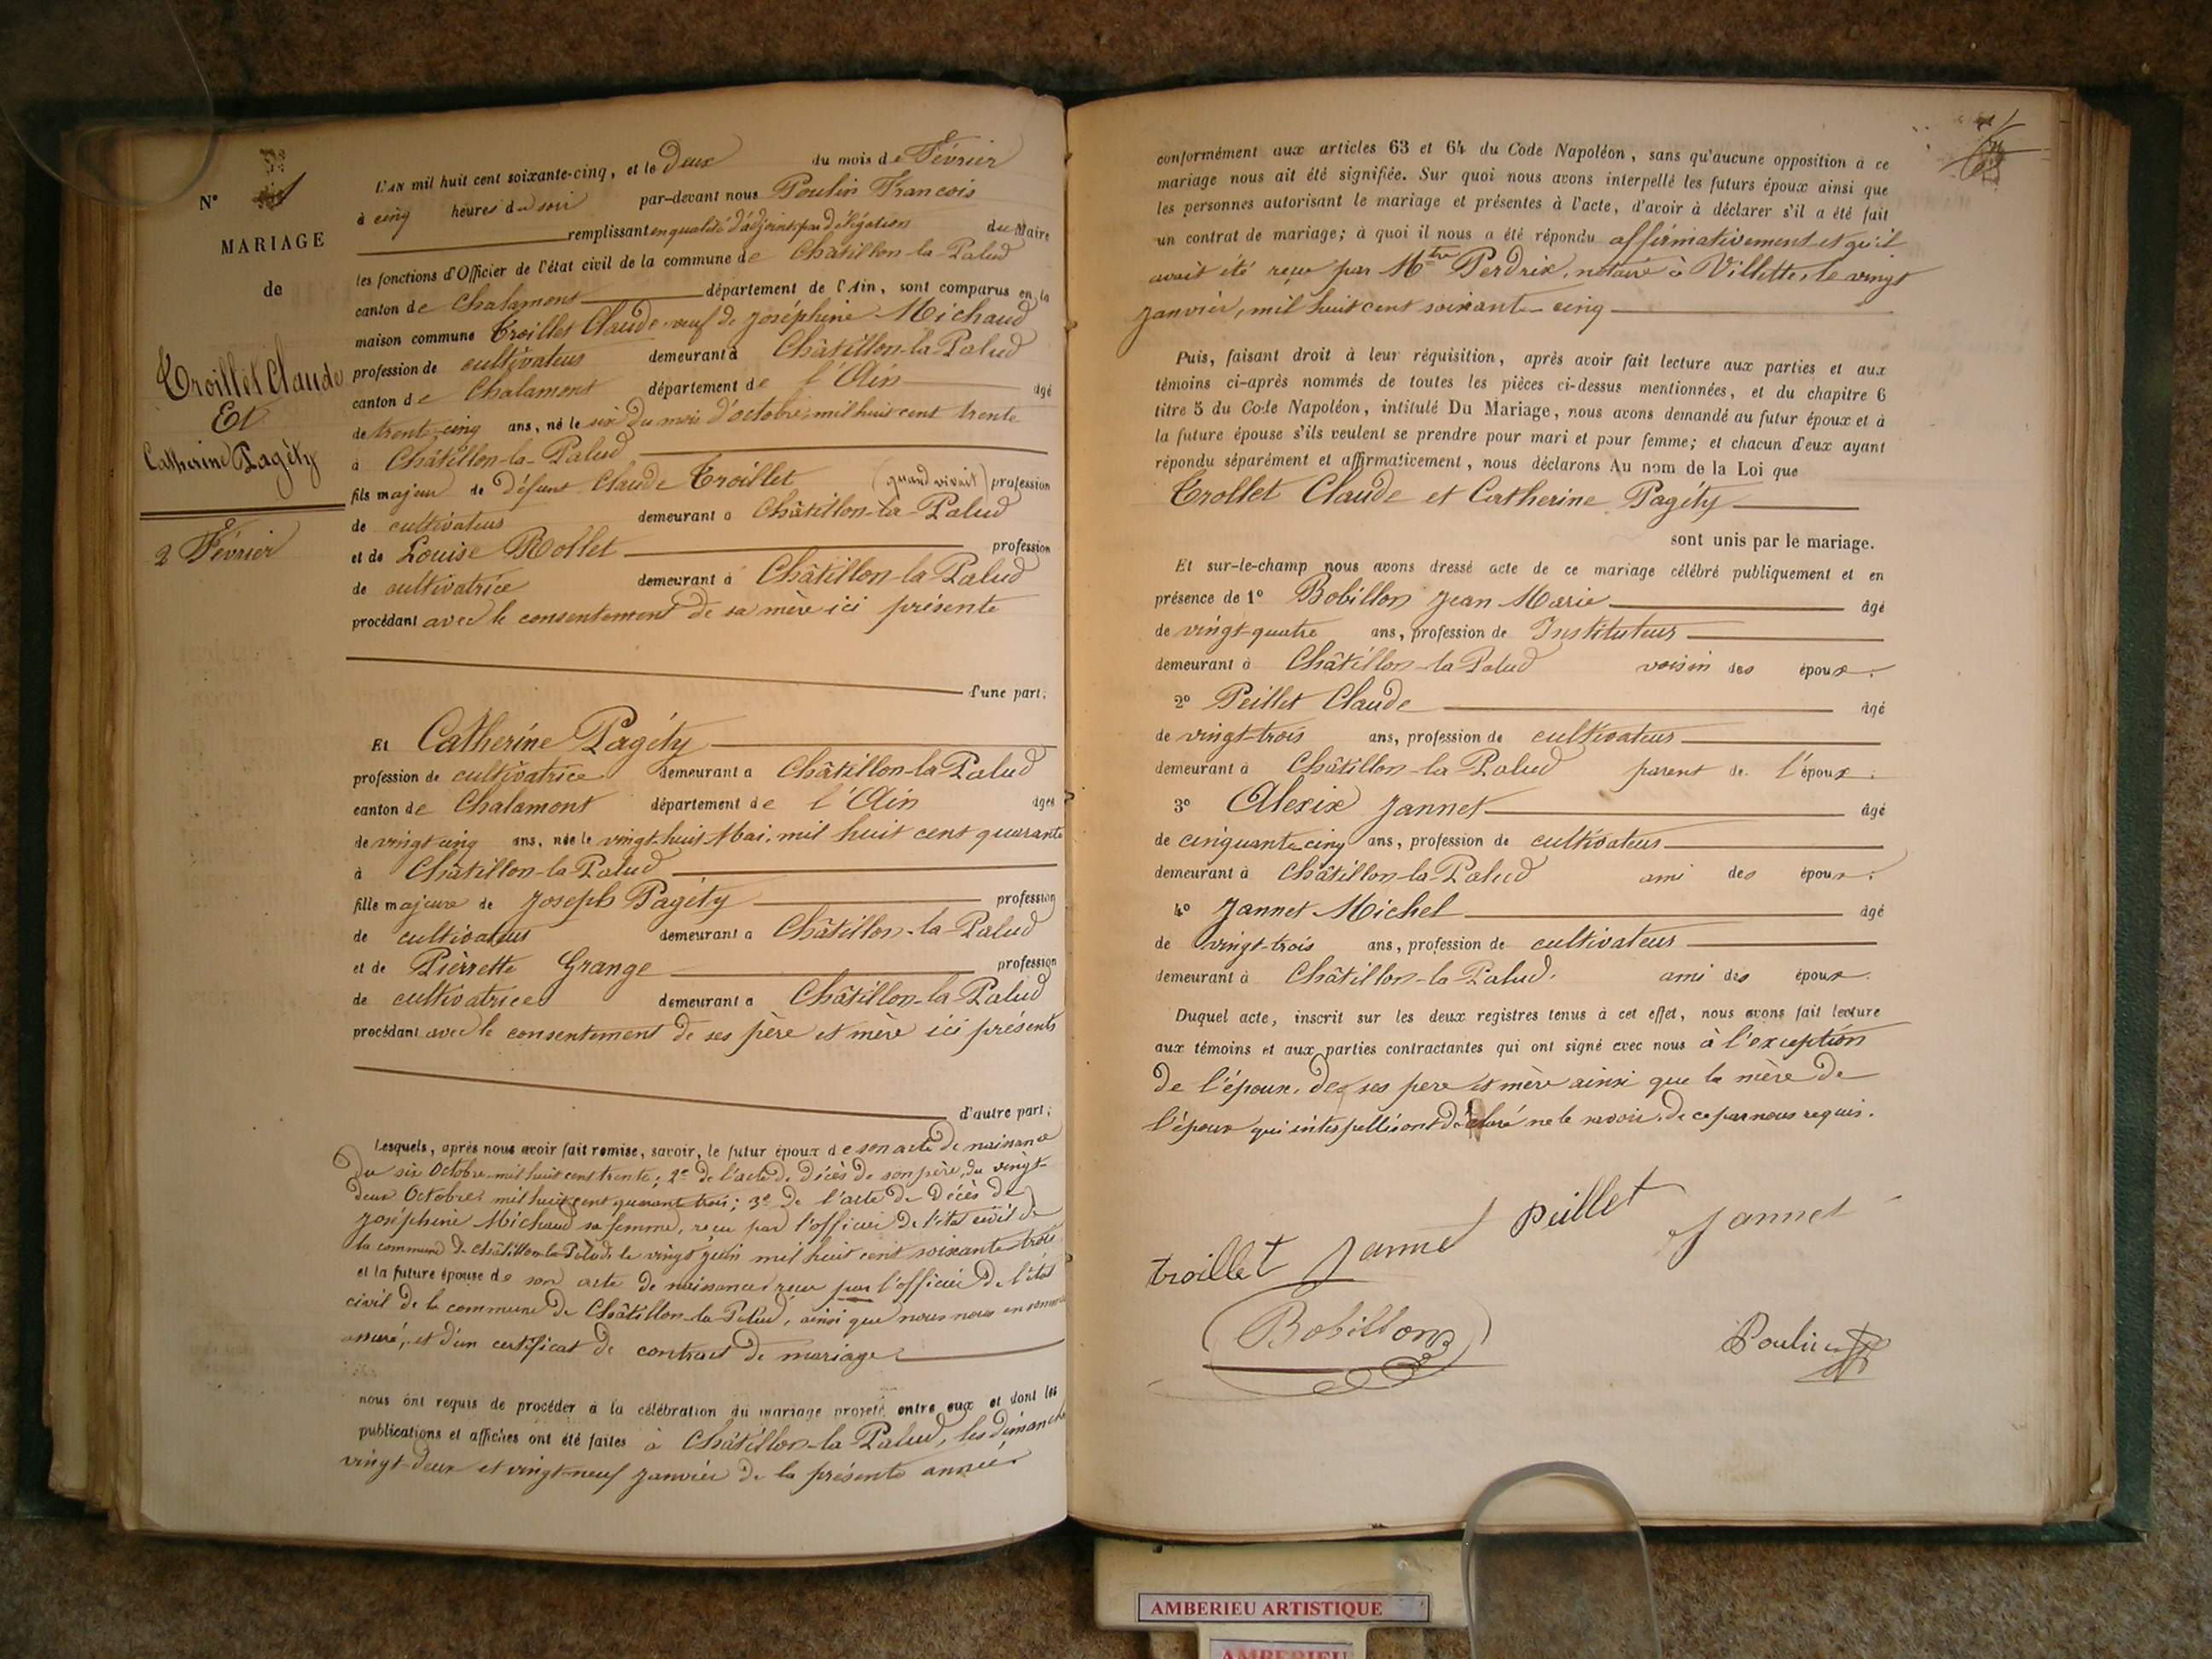 N°
MARIAGE
de
Troillet Claude
Et
Catherine Pagéty
2 Février
L'an mil huit cent soixante-cinq, et le Deux du mois de Février
à cinq heures du soir par-devant nous Poulin Francois
remplissant en qualité d'adjoint par délégation du Maire
les fonctions d'Officier de l'état civil de la commune de Châtillon-la-Palud
canton de Chalamont département de l'Ain, sont comparus en la
maison commune Troillet Claude veuf de Joséphine Michaud
profession de cultivateur demeurant à Châtillon-la-Palud
canton de Chalamont département de l'Ain agé
de trente-cinq ans, né le six du mois d'octobre mil huit cent trente
à Châtillon-la-Palud
fils majeur de défunt Claude Troillet (quand vivait) profession
de cultivateur demeurant a Châtillon-la-Palud
et de Louise Rollet profession
de cultivatrice demeurant à Châtillon-la-Palud
procédant avec le consentement de sa mère ici présente
d'une part.
Et Catherine Pagéty
profession de cultivatrice demeurant a Châtillon-la-Palud
canton de Chalamont département de l'Ain âgée
de vingt-cinq ans, née le vingt-huit Mai, mil huit cent quarante
à Châtillon-la-Palud
fille majeure de Joseph Pagéty profession
de cultivateur demeurant a Châtillon-la-Palud
et de Pièrrette Grange profession
de cultivatrice demeurant a Châtillon-la-Palud
procédant avec le consentement de ses père et mère ici présents
d'autre part;
Lesquels, après nous avoir fait remise, savoir, le futur époux de son acte de naissance
du six Octobre mil huit cent trente; 2° de l'acte de décès de son père, du vingt-
deux Octobre mil huit cent quarante trois; 3° de l'acte de décès de
Joséphine Michaud sa femme, reçu par l'officier de l'état civil de
la commune de Châtillon-la-Palud, le vingt juin mil huit cent soixante trois
et la future épouse de son acte de naissance reçu par l'officier de l'état
civil de la commune de Châtillon-la-Palud, ainsi que nous nous en sommes
assuré, et d'un certificat de contrat de mariage
nous ont requis de procéder à la célébration du mariage projeté entre eux et dont les
publications et affiches ont été faites à Châtillon-la-Palud, les dimanches
vingt-deux et vingt-neuf janvier de la présente année
conformément aux articles 63 et 64 du Code Napoléon, sans qu'aucune opposition à ce
mariage nous ait été signifiée. Sur quoi nous avons interpellé les futurs époux ainsi que
les personnes autorisant le mariage et présentes à l'acte, d'avoir à déclarer s'il a été fait
un contrat de mariage; à quoi il nous a été répondu affirmativement et qu'il
avait été reçu par Mtre Perdrix, notaire à Villette, le vingt
janvier, mil huit cent soixante-cinq
Puis, faisant droit à leur réquisition, après avoir fait lecture aux parties et aux
témoins ci-après nommés de toutes les pièces ci-dessus mentionnées, et du chapitre 6
titre 5 du Code Napoléon, intitulé Du Mariage, nous avons demandé au futur époux et à
la future épouse s'ils veulent se prendre pour mari et pour femme; et chacun d'eux ayant
répondu séparément et affirmativement, nous déclarons Au nom de la Loi que
Trollet Claude et Catherine Pagéty
sont unis par le mariage.
Et sur-le-champ nous avons dressé acte de ce mariage célébré publiquement et en
présence de 1° Bobillon Jean Marie âgé
de vingt-quatre ans, profession de Instituteur
demeurant à Châtillon-la-Palud voisin des époux.
2° Peillet Claude âgé
de vingt-trois ans, profession de cultivateur
demeurant à Châtillon-la-Palud parent de l'époux.
3° Alexix Jannet âgé
de cinquante-cinq ans, profession de cultivateur
demeurant à Châtillon-la-Palud ami des époux.
4° Jannet Michel âgé
de vingt-trois ans, profession de cultivateur
demeurant à Châtillon-la-Palud. ami des époux.
Duquel acte, inscrit sur les deux registres tenus à cet effet, nous avons fait lecture
aux témoins et aux parties contractantes qui ont signé avec nous à l'exception
de l'épouse, de ses pere et mère ainsi que la mère de
l'époux qui interpellés ont déclaré ne le savoir, de ce par nous requis.
troillet Jannet Peillet Jannet
Bobillon Poulin
AMBERIEU ARTISTIQUE
AMBERIEU